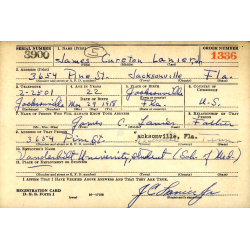 SERIAL NUMBER 1. NAME (Print) ORDER NUMBER
3900 James Cureton Lanier Jr. 1336
2. ADDRESS (Print)
3654 Pine St. Jacksonville Fla.
3. TELEPHONE 4. AGE IN YEARS 5. PLACE OF BIRTH 6. COUNTRY OF CITIZENSHIP
2-2501 22 Jacksonville
DATE OF BIRTH
Nov 29, 1918 Fla. U.S.
7. NAME OF PERSON WHO WILL ALWAYS KNOW YOUR ADDRESS 8. RELATIONSHIP OF THAT PERSON
James C. Lanier Father
9. ADDRESS OF THAT PERSON
3654 Pine St. Jacksonville, Fla.
10. EMPLOYER'S NAME
Vanderbilt University, student (Sch. of Med.)
11. PLACE OF EMPLOYMENT OR BUSINESS
I AFFIRM THAT I HAVE VERIFIED ABOVE ANSWERS AND THAT THEY ARE TRUE.
REGISTRATION CARD
D. S. S. Form 1 J C Lanier Jr